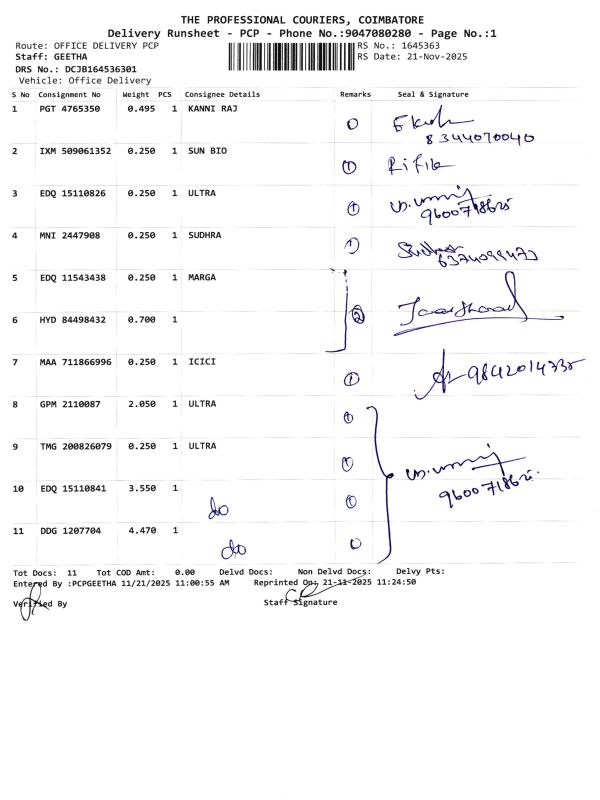 THE PROFESSIONAL COURIERS, COIMBATORE
Delivery Runsheet - PCP - Phone No.:9047080280 - Page No.:1
Route: OFFICE DELIVERY PCP RS No.: 1645363
Staff: GEETHA RS Date: 21-Nov-2025
DRS No.: DCJB164536301
Vehicle: Office Delivery
S No Consignment No Weight PCS Consignee Details Remarks Seal & Signature
1 PGT 4765350 0.495 1 KANNI RAJ
8344070040
2 IXM 509061352 0.250 1 SUN BIO 1
3 EDQ 15110826 0.250 1 ULTRA 1
9600718625
4 MNI 2447908 0.250 1 SUDHRA 1
5 EDQ 11543438 0.250 1 MARGA
6 HYD 84498432 0.700 1 2
7 MAA 711866996 0.250 1 ICICI 1 9842014335
8 GPM 2110087 2.050 1 ULTRA 1
9 TMG 200826079 0.250 1 ULTRA 1
10 EDQ 15110841 3.550 1 do 1 9600718625
11 DDG 1207704 4.470 1 do
Tot Docs: 11 Tot COD Amt: 0.00 Delvd Docs: Non Delvd Docs: Delvy Pts:
Entered By :PCPGEETHA 11/21/2025 11:00:55 AM Reprinted On: 21-11-2025 11:24:50
Verified By Staff Signature